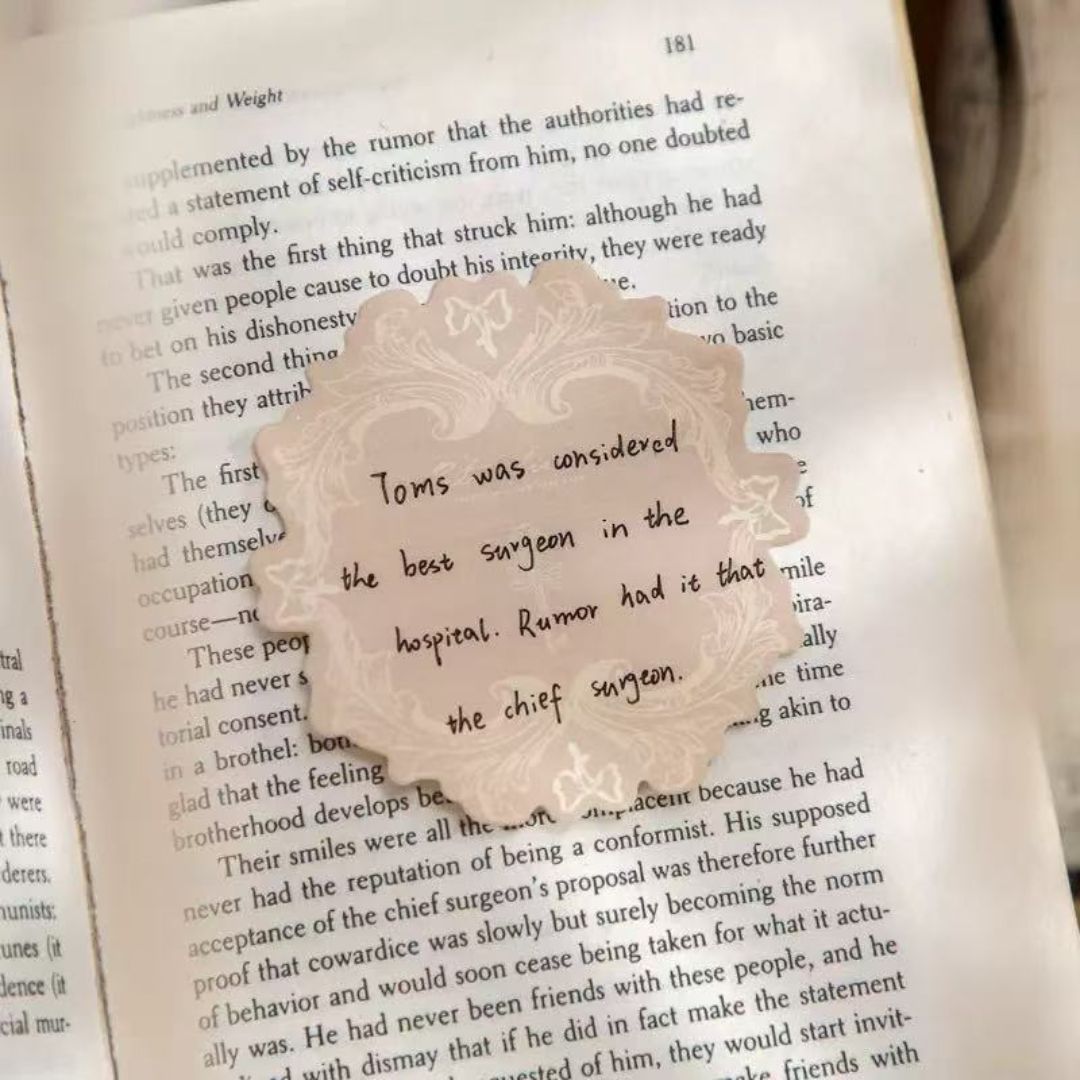 181
and Weight
supplemented by the rumor that the authorities had re-
a statement of self-criticism from him, no one doubted
would comply.
That was the first thing that struck him: although he had
never given people cause to doubt his integrity, they were ready
to bet on his dishonesty
The second thing tion to the
position they attrib wo basic
types:
The first hem-
selves (they who
had themselve
occupation of
course—no mile
These peop ira-
he had never s ally
torial consent. time
in a brothel: g akin to
glad that the feeling
brotherhood develops be
Their smiles were all the because he had
never had the reputation of being a conformist. His supposed
acceptance of the chief surgeon's proposal was therefore further
proof that cowardice was slowly but surely becoming the norm
of behavior and would soon cease being taken for what it actu-
ally was. He had never been friends with these people, and he
with dismay that if he did in fact make the statement
of him, they would start invit-
friends with
Toms was considered
the best surgeon in the
hospital. Rumor had it that
the chief surgeon.
tral
ng a
inals
road
were
there
derers.
munists:
unes (it
dence (it
cial mur-